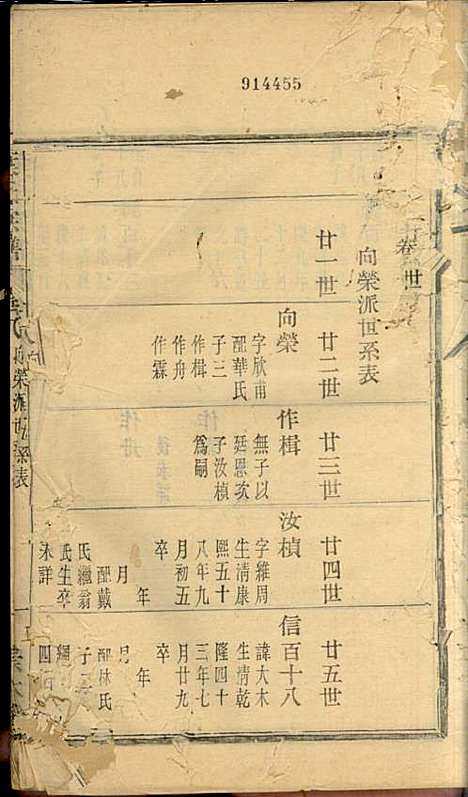 914455
卷 世
向榮派世系表
廿一世
廿二世
向榮
字欣甫
配華氏
子三
作楫
作舟
作霖
廿三世
作楫
無子以
廷恩次
子汝楨
爲嗣
廿四世
汝楨
字維周
生清康
熙五十
八年九
月初五
卒 年
月
配戴
氏繼翁
氏生卒
未詳
廿五世
信百十八
諱大木
生清乾
隆四十
三年七
月廿九
卒 年
月
配林氏
子二
四
向榮派世系表